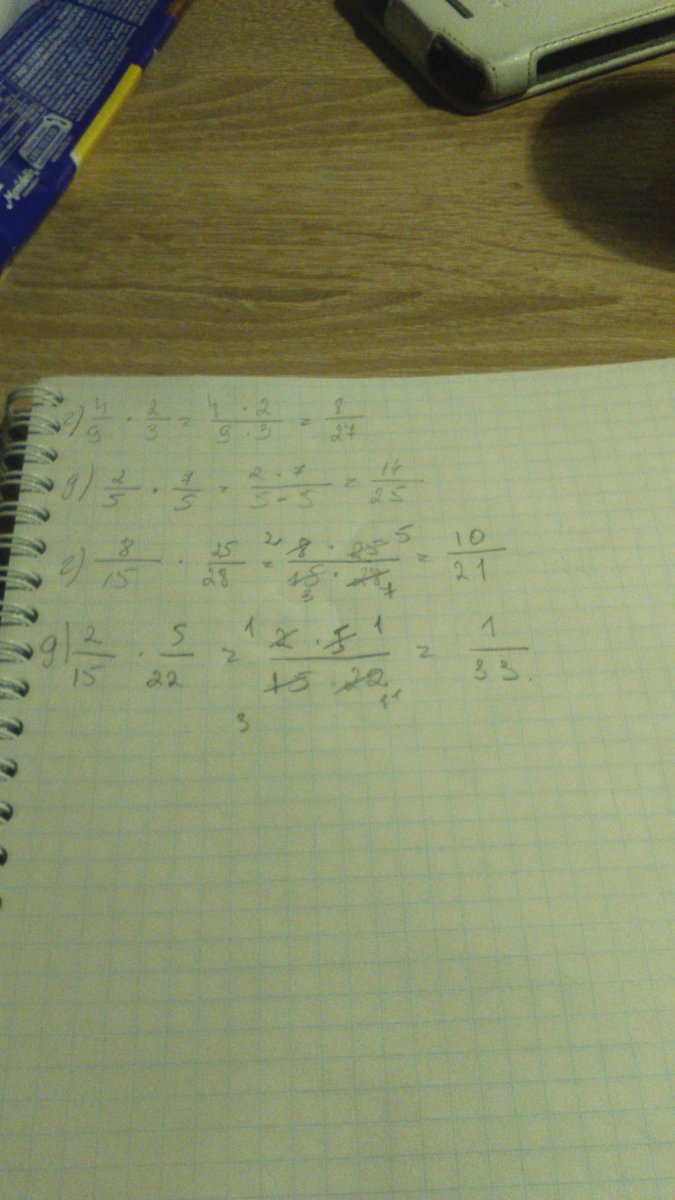 г) 4/9 · 2/3 = 4 · 2 / 9 · 3 = 8/27
д) 2/5 · 7/5 = 2 · 7 / 5 · 5 = 14/25
г) 8/15 · 25/28 = 2 8 · 25 5 / 15 3 · 28 7 = 10/21
д) 2/15 · 5/22 = 1 2 · 5 1 / 15 3 · 22 11 = 1/33.